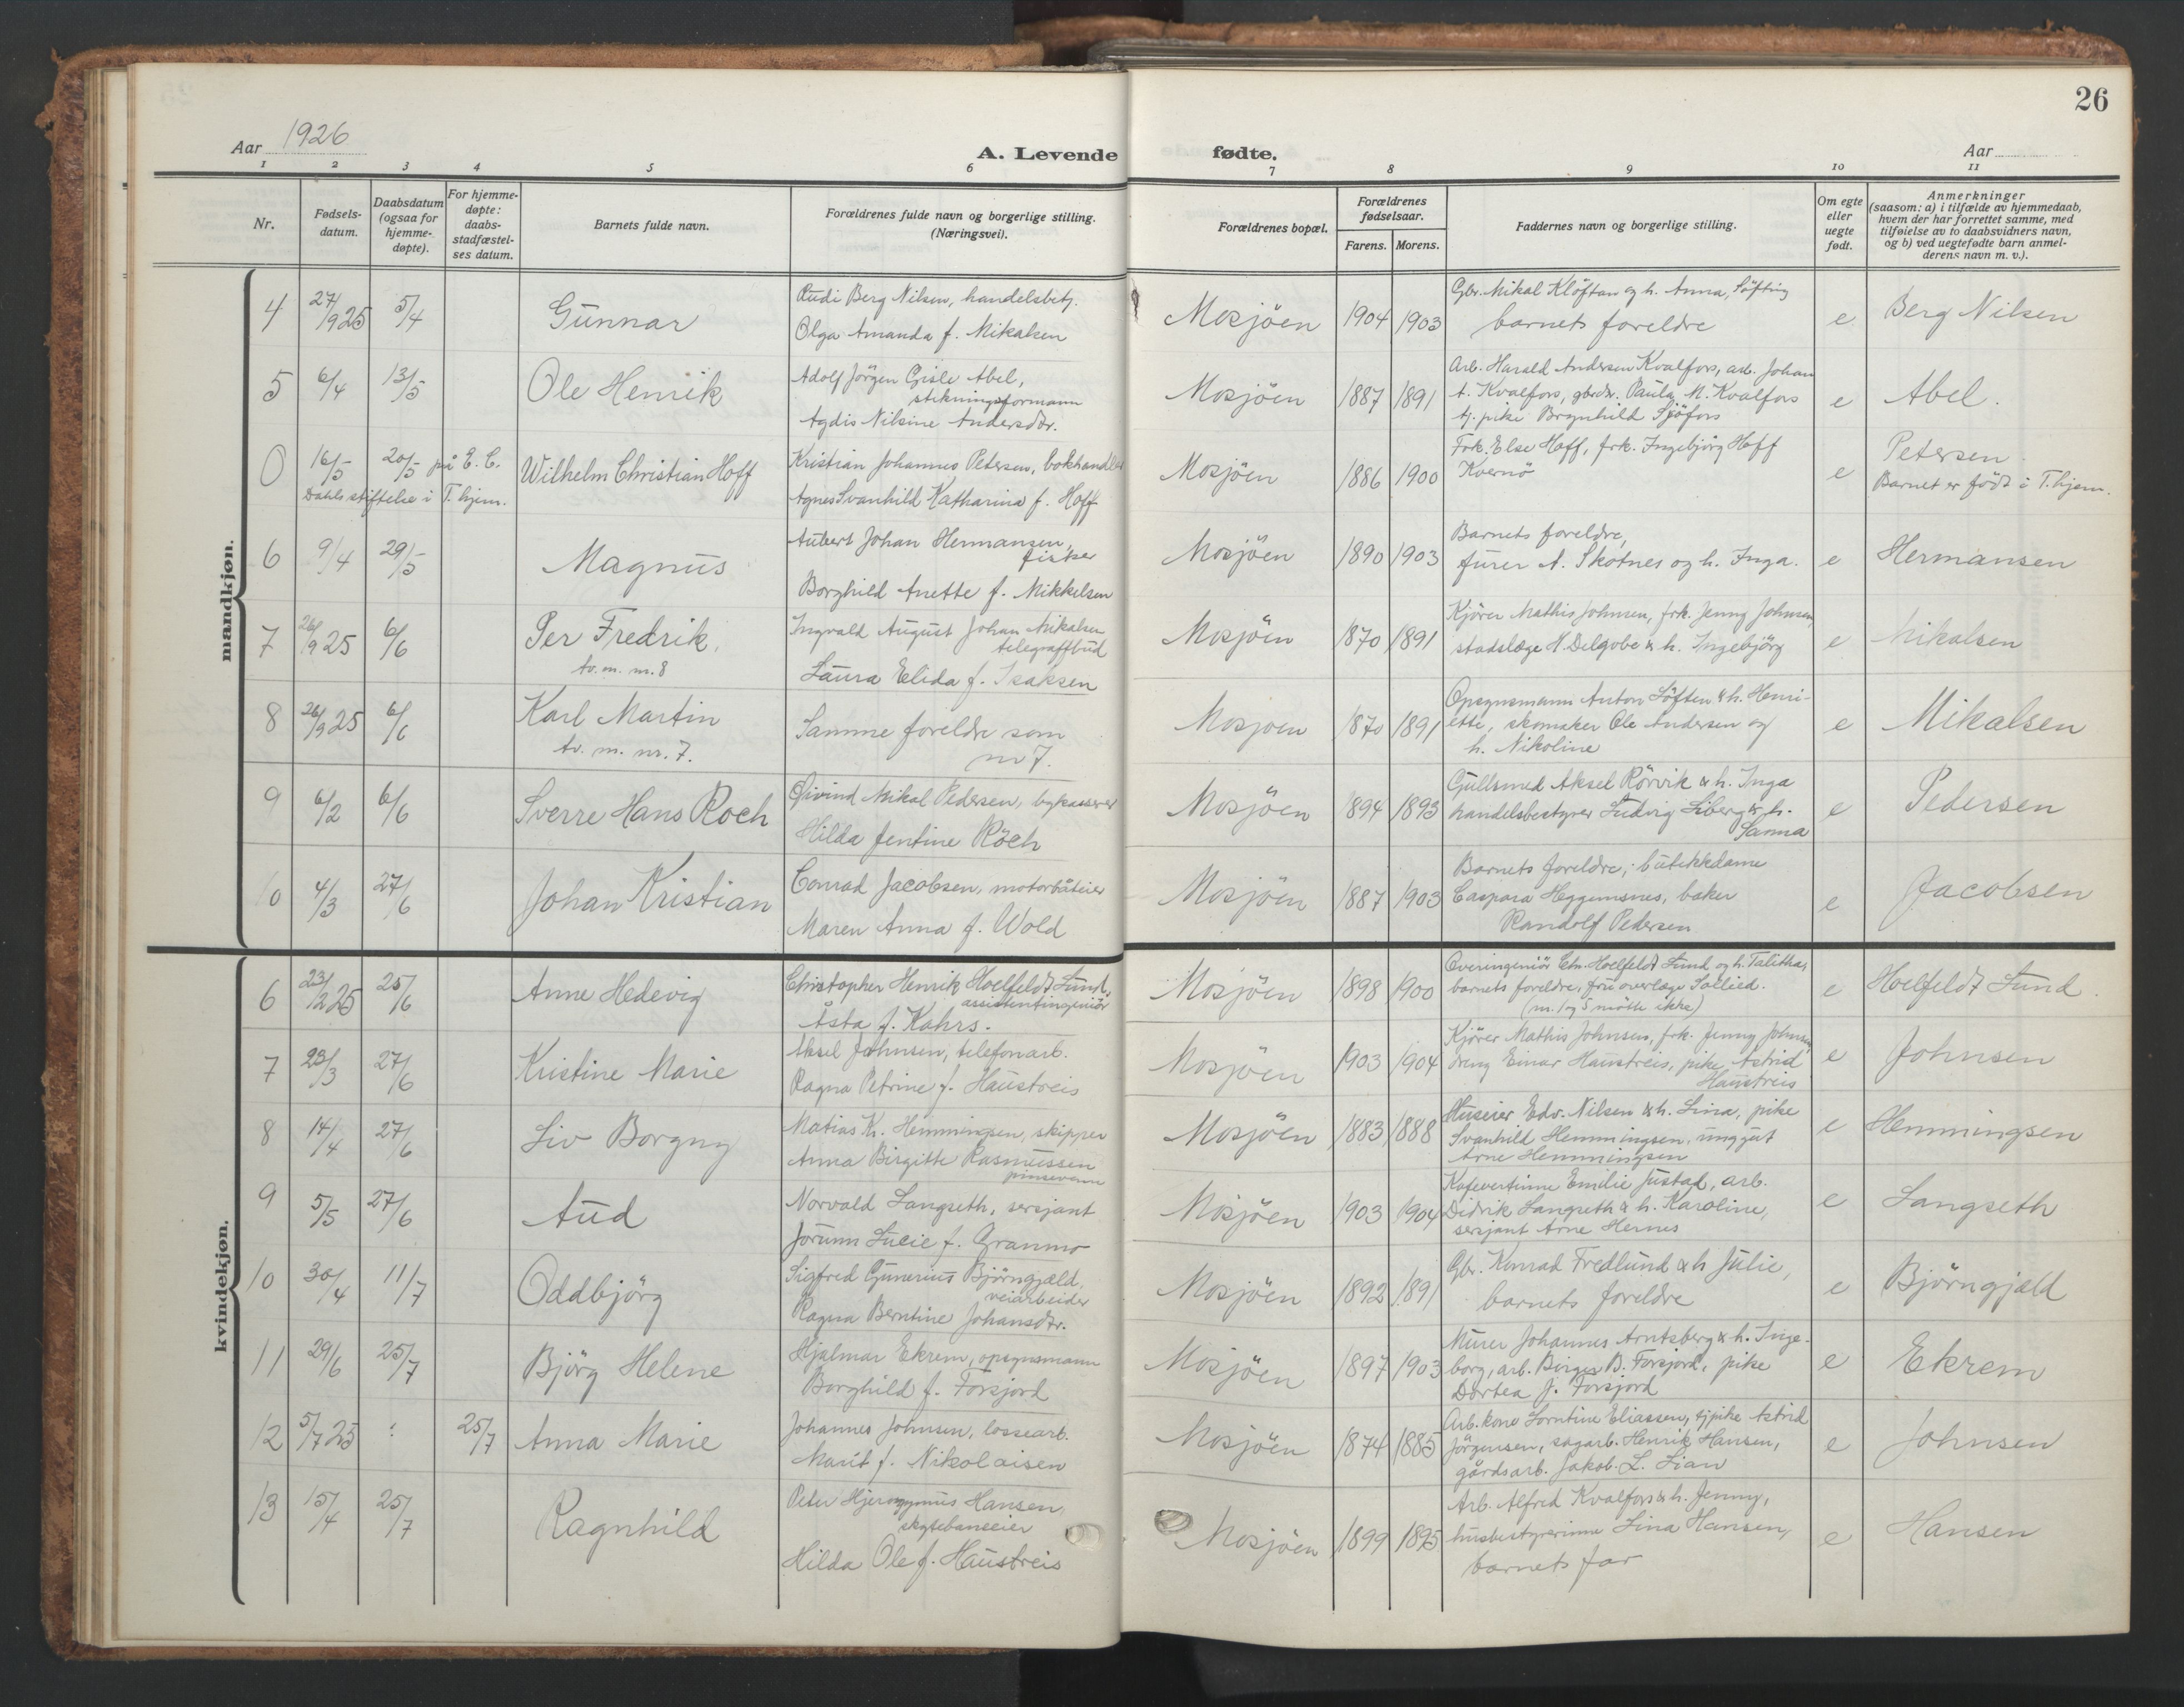 26
Aar 1926
A. Levende
fødte.
Aar
1 2 3 4 5 6 7 8 9 10 11
Nr.
Fødsels-
datum.
Daabsdatum
(ogsaa for
hjemme-
døpte).
For hjemme-
døpte:
daabs-
stadfæstel-
ses datum.
Barnets fulde navn.
Forældrenes fulde navn og borgerlige stilling.
(Næringsvei).
Forældrenes bopæl.
Forældrenes
fødselsaar.
Farens. Morens.
Faddernes navn og borgerlige stilling.
Om egte
eller
uegte
født.
Anmerkninger
(saasom: a) i tilfælde av hjemmedaab,
hvem der har forrettet samme, med
tilføielse av to daabsvidners navn,
og b) ved uegtefødte barn anmel-
derens navn m. v.).
mandkjøn.
4 27/9 25 5/4 Gunnar
Rudi Berg Nilsen, handelsbetj.
Olga Amanda f. Mikalsen
Mosjöen 1904 1903
Gbr. Mikal Klöftan og h. Anna, Söfting
barnets foreldre
e Berg Nilsen
5 6/4 13/5 Ole Henrik
Adolf Jörgen Gisle Abel,
stikningsformann
Agdis Nilsine Andersdtr.
Mosjöen 1887 1891
Arb. Harald Andersen Kvalfors, arb. Johan
A. Kvalfors, gbrdtr. Paula M. Kvalfors
tj. pike Brynhild Sjöfors
e Abel.
0 16/5 20/5 på E. C.
Dahls stiftelse i T.hjem.
Wilhelm Christian Hoff
Kristian Johannes Petersen, bokhandler
Agnes Svanhild Katharina f. Hoff
Mosjöen 1886 1900
Frk. Else Hoff, frk. Ingebjörg Hoff
Kvernö
e Petersen.
Barnet er födt i T.hjem.
6 9/4 29/5 Magnus
Aubert Johan Hermansen,
fisker
Borghild Anette f. Mikkelsen
Mosjöen 1890 1903
Barnets foreldre,
furer A. Skotnes og h. Inga.
e Hermansen
7 26/9 25 6/6 Per Fredrik,
tv. m. nr. 8
Ingvald August Johan Mikalsen
telegraffbud
Laura Elida f. Isaksen
Mosjöen 1870 1891
Kjörer Mathis Johnsen, frk. Jenny Johnsen,
stadslæge H Delgobe & h. Ingebjörg
e Mikalsen
8 26/9 25 6/6 Karl Martin
tv. m. nr. 7.
Samme foreldre som
nr 7.
Mosjöen 1870 1891
Opsynsmann Anton Söften & h. Henri-
ette, skomaker Ole Andersen og
h. Nikoline
e Mikalsen
9 6/2 6/6 Sverre Hans Roch
Øivind Mikal Pedersen, bykasserer
Hilda Jentine Röch
Mosjöen 1894 1893
Gullsmed Aksel Rörvik & h. Inga
handelsbestyrer Ludvig Liberg & h.
Sanna
e Pedersen
10 4/3 27/6 Johan Kristian
Conrad Jacobsen, motorbåteier
Maren Anna f. Wold
Mosjöen 1887 1903
Barnets foreldre, butikkdame
Caspara Heggemsnes, baker
Randolf Pedersen
e Jacobsen
kvindekjøn.
6 23/12 25 25/6 Anne Hedevig
Christopher Henrik Hoelfeldt Lund,
assistentingeniör
Åsta f. Kahrs.
Mosjöen 1898 1900
Overingeniör Chr. Hoelfeldt Lund og h. Talitha,
barnets foreldre, fru overlæge Sollied.
(nr. 1 og 5 mötte ikke)
e Hoelfeldt Lund.
7 23/3 27/6 Kristine Marie
Aksel Johnsen, telefonarb.
Ragna Petrine f. Haustreis
Mosjöen 1903 1904
Kjörer Mathis Johnsen, frk. Jenny Johnsen
dreng Einar Haustreis, pike Astrid
Haustreis
e Johnsen
8 14/4 27/6 Liv Borgny
Matias Kr. Hemmingsen, skipper
Anna Birgitte Rasmussen
pinseven
Mosjöen 1883 1888
Huseier Edv. Nilsen & h. Lina, pike
Svanhild Hemmingsen, unggut
Arne Hemmingsen
e Hemmingsen
9 5/5 27/6 Aud
Norvald Langseth, sersjant
Jorunn Lucie f. Granmo
Mosjöen 1903 1904
Kafevertinne Emilie Justad, arb.
Didrik Langseth & h. Karoline,
sersjant Arne Hernes
e Langseth
10 30/4 11/7 Oddbjörg
Sigfred Gunerius Björngjæld,
veiarbeider
Ragna Berntine Johansdtr.
Mosjöen 1892 1891
Gbr. Konrad Fredlund & h Julie,
barnets foreldre
e Björngjæld
11 29/6 25/7 Björg Helene
Hjalmar Ekrem, opsynsmann
Borghild f. Forsjord
Mosjöen 1897 1903
Murer Johannes Arntsberg & h. Inge-
borg, arb. Birger B. Forsjord, pike
Dortea J. Forsjord
e Ekrem
12 5/7 25 : 25/7 Anna Marie
Johannes Johnsen, lossearb.
Marit f. Nikolaisen
Mosjöen 1874 1885
Arb.kone Lorntine Eliassen, tjpike Astrid
Jörgensen, sagarb. Henrik Hansen,
gårdsarb. Jakob. L. Lian
e Johnsen
13 15/4 25/7 Ragnhild
Peter Hjeronymus Hansen,
skytebaneeier
Hilda Ole f. Haustreis
Mosjöen 1899 1895
Arb. Alfred Kvalfors & h. Jenny,
husbestyrerinne Lina Hansen,
barnets far
e Hansen